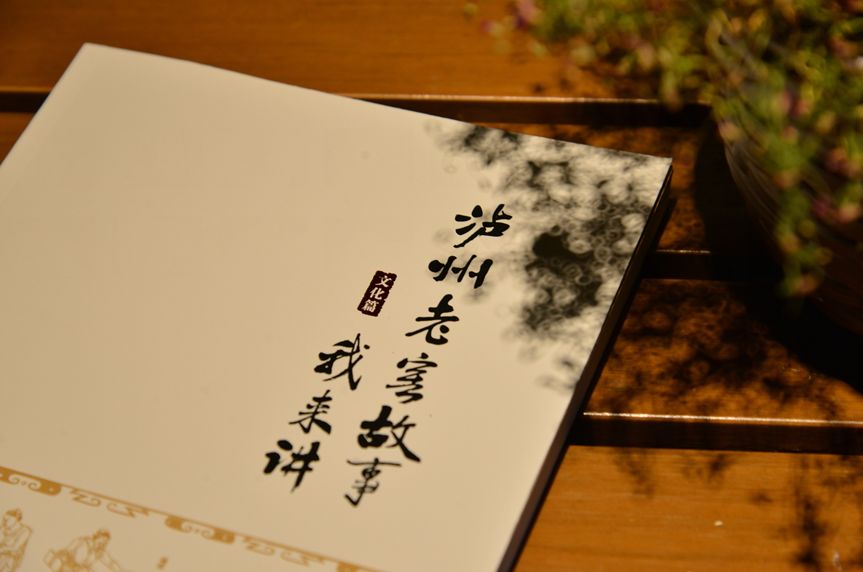 泸州老窖故事
我来讲
文化篇